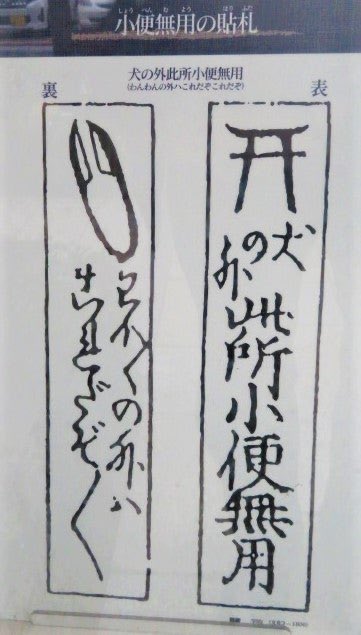 小便無用の貼札
しょうべんむようはりふだ
犬の外此所小便無用
(わんわんの外ハこれだぞこれだぞ)
表
犬の外此所小便無用
裏
わんわんの外ハ
これだぞ〱